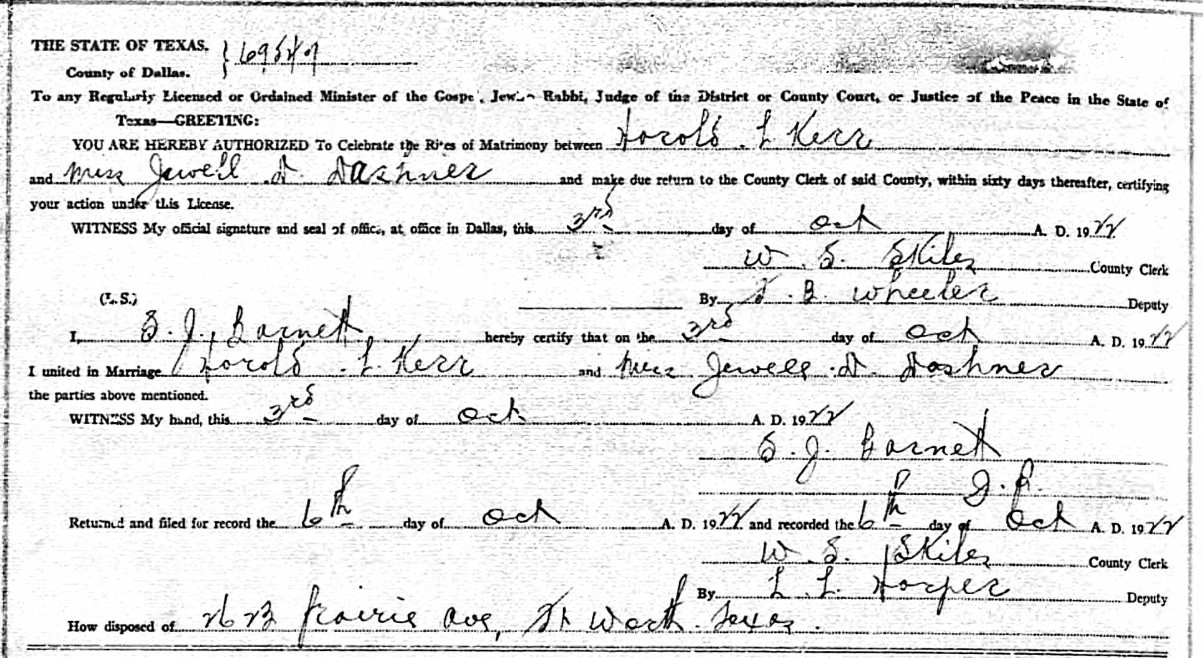 THE STATE OF TEXAS.
County of Dallas.
To any Regularly Licensed or Ordained Minister of the Gospel, Jewish Rabbi, Judge of the District or County Court, or Justice of the Peace in the State of
Texas—GREETING:
YOU ARE HEREBY AUTHORIZED To Celebrate the Rites of Matrimony between Harold L Kerr
and Miss Jewell D. Dashner and make due return to the County Clerk of said County, within sixty days thereafter, certifying
your action under this License.
WITNESS My official signature and seal of office, at office in Dallas, this 3rd day of Oct A. D. 1922
W. S. Skiles County Clerk
(L. S.) By B Wheeler Deputy
I, S. J. Barnett hereby certify that on the 3rd day of Oct A. D. 1922
I united in Marriage Harold L Kerr and Miss Jewell D. Dashner
the parties above mentioned.
WITNESS My hand, this 3rd day of Oct A. D. 1922
S. J. Barnett
J. P.
Returned and filed for record the 6th day of Oct A. D. 1922 and recorded the 6th day of Oct A. D. 1922
W. S. Skiles County Clerk
By L. L. Harper Deputy
How disposed of Prairie Ave, Ft Worth Texas.